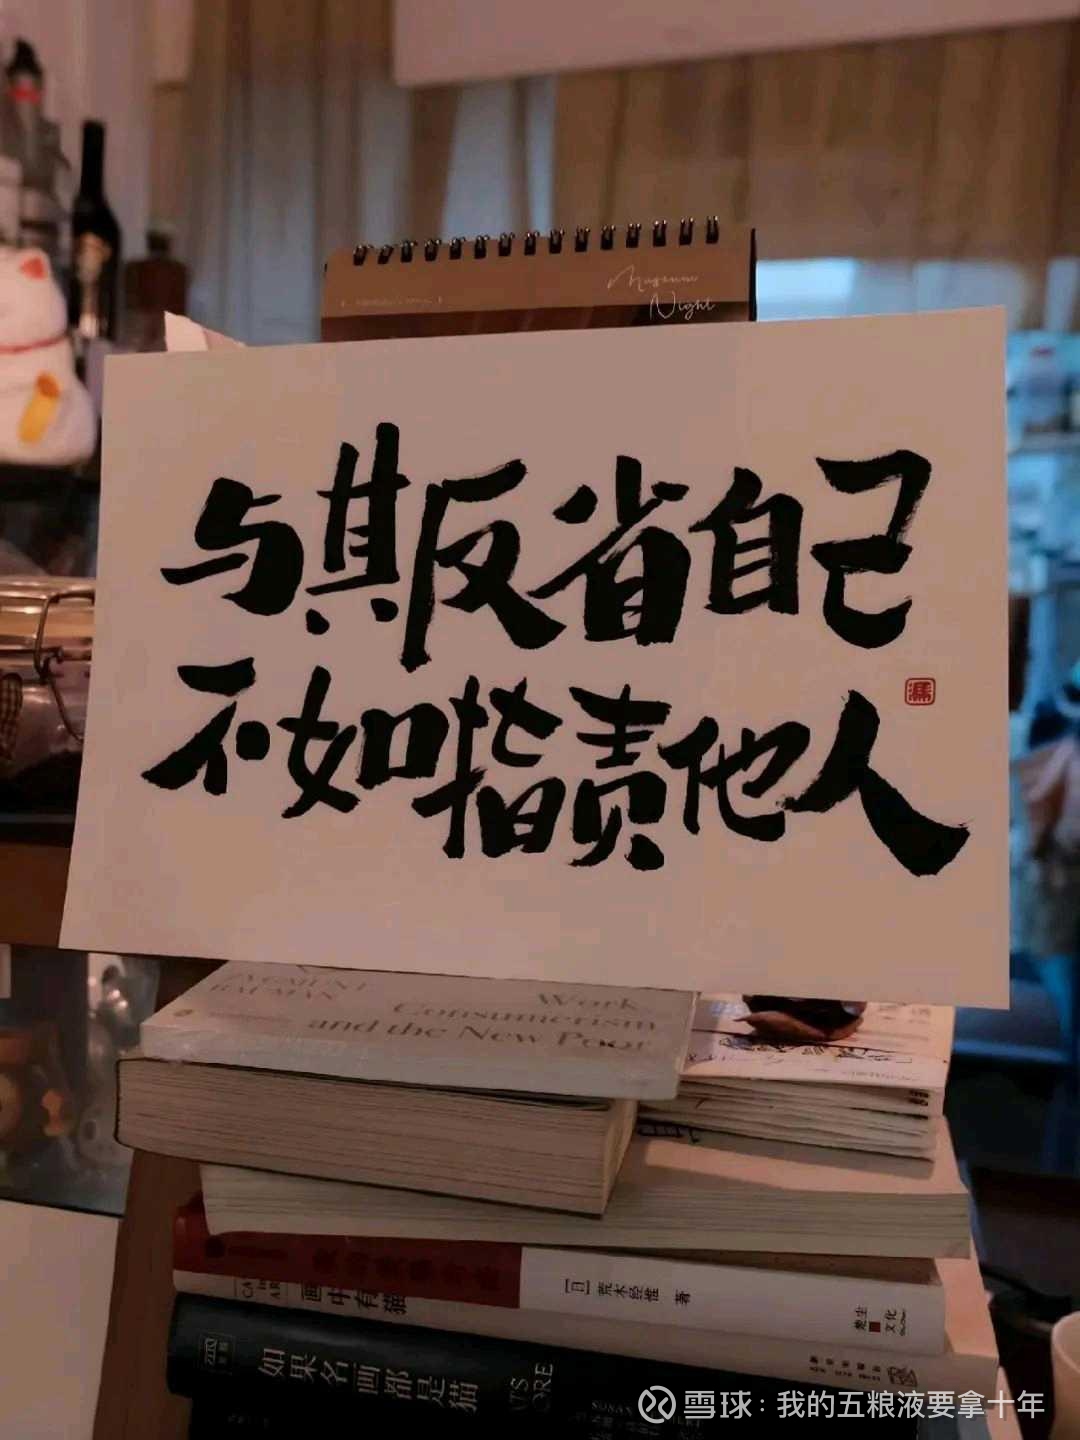 Museum
Night
与其反省自己
不如指责他人
馮
ZYGMUNT
BAUMAN
Work,
Consumerism
and the New Poor
[日] 荒木经惟 著
楚尘
文化
画中有猫
如果名画都是猫
SUSAN
雪球：我的五粮液要拿十年